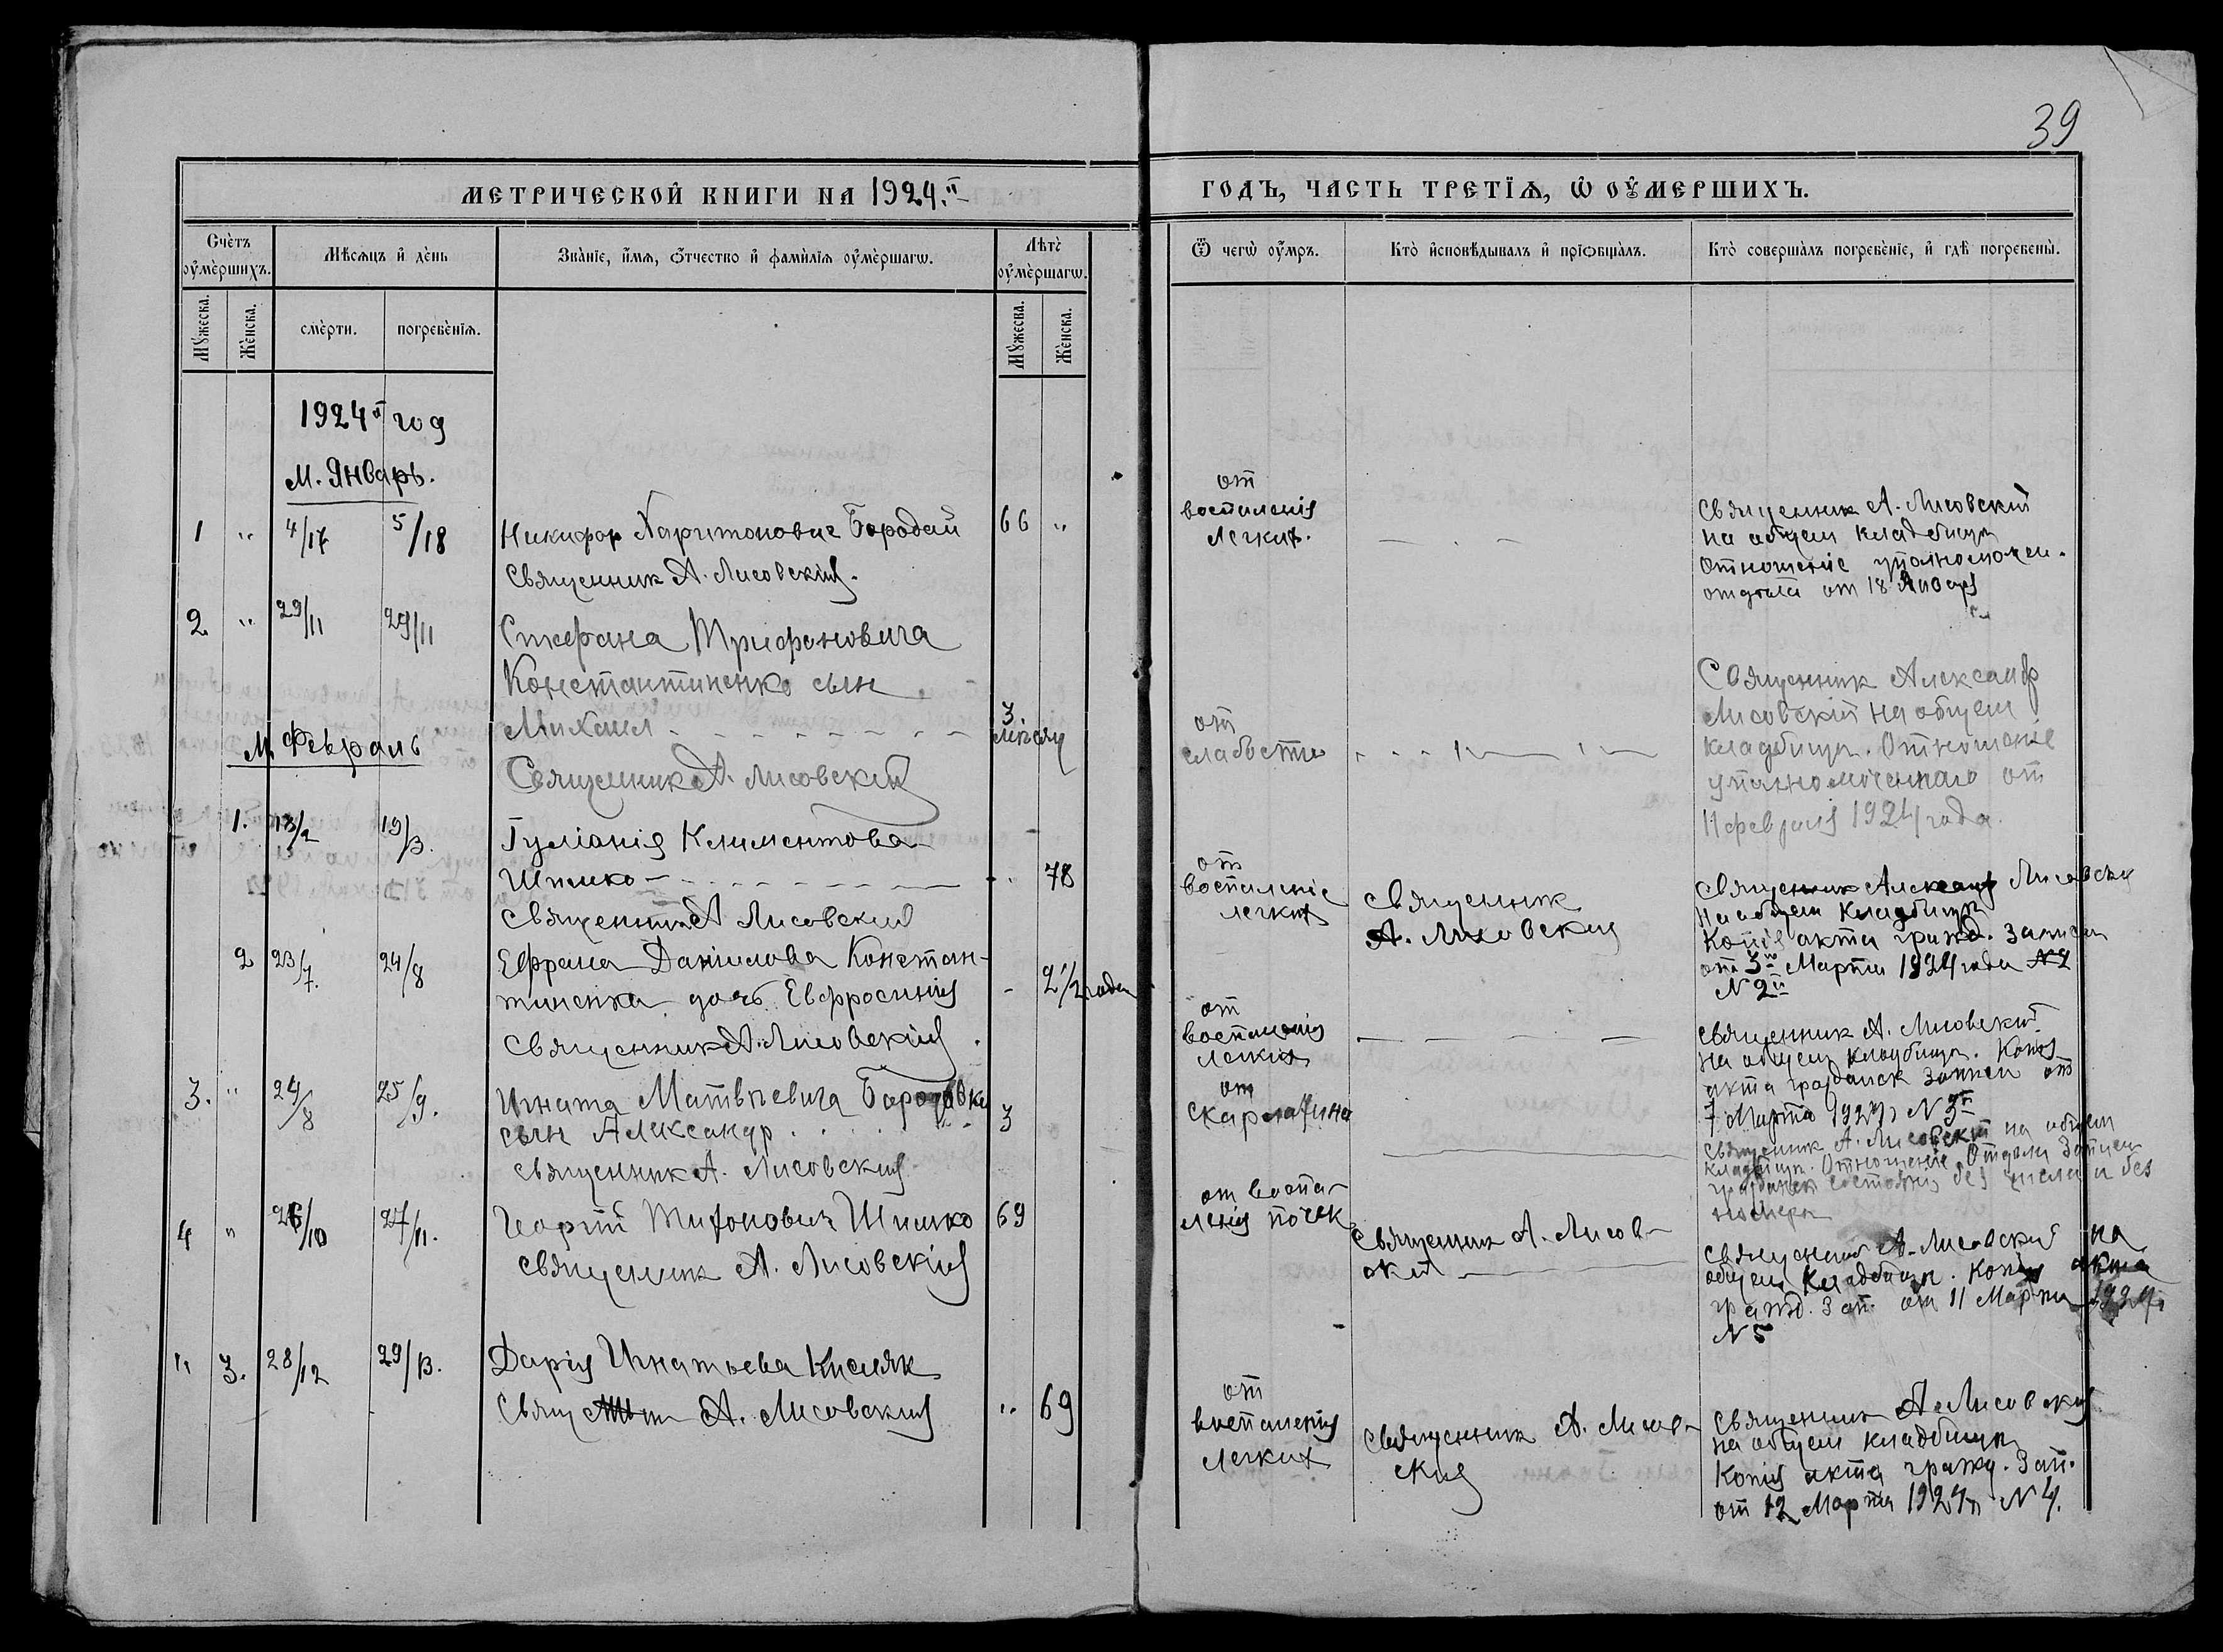 39
МЕТРИЧЕСКОЙ КНИГИ НА 1924.й
ГОДЪ, ЧАСТЬ ТРЕТІѦ, Ѡ ОУМЕРШИХЪ.
Счетъ оумершихъ.
Мѣсѧцъ и день
Званіе, имѧ, ѿчество и фамиліѧ оумершагѡ.
Лѣтъ оумершагѡ.
Ѿ чегѡ оумръ.
Кто исповѣдывалъ и пріѡбщалъ.
Кто совершалъ погребеніе, и гдѣ погребены.
Мужеска.
Женска.
смерти.
погребеніѧ.
Мужеска.
Женска.
1924й год
м. Январь.
1 " 4/17 5/18
Никифор Харитонович Бородай
66 "
Священник А. Лисовскій.
от
воспаленія
легких.
Священник А. Лисовский
на общем кладбищѣ
Отношеніе уполномочен.
от 18 Января
2 " 29/11 29/11
Стефана Трифоновича
Константиненко сын
Михаил
3
мѣсяц
Священник А. Лисовский
от
слабости
Священник Александр
Лисовскій на общем
кладбищѣ. Отношеніе
уполномоченнаго от
11 февраля 1924 года.
М. Февраль
1. 18/2 19/3.
Іуліанія Климентова
Шпилько
78
Священник А Лисовский
от
воспаленіе
легких
Священник
А. Лисовский
Священник Александр Лисовский
На общем кладбищѣ
Копія акта гражд. записи
от 3го Марта 1924 года N2
N 2й
2 23/7. 24/8
Ефрема Даніилова Констан-
тиненка дочь Евфросинія
- 2 1/2 года
Священник А. Лисовскій
от
воспаленія
легких
Священник А. Лисовский
на общем кладбищѣ. Копія
акта гражданск записи от
7 Марта 1924г N 3й
3. " 24/8 25/9.
Игната Матвѣевича Бородавки
сын Александр
3
Священник А. Лисовский
от
Скарлатина
Священник А. Лисовский на общем
кладбищѣ. Отношеніе Отдела Записи
гражданск состоянія без числа и без
номера
4 " 26/10 27/11.
Георгій Тихонович Шпилько
69
Священник А. Лисовскій
от воспа-
ленія почек
Священник А. Лисов-
ский
Священник А. Лисовский на
общем Кладбищѣ. Копія акта
гражд. Зап. от 11 Марта 1924г
N 5
" 3. 28/12 29/13.
Дарія Игнатьева Кисляк
Священник А. Лисовский
" 69
от
воспаленія
легких
Священник А. Лисов-
ский
Священник А. Лисовский
на общем кладбищѣ
Копія акта гражд. Зап.
от 12 Марта 1924г N 4.